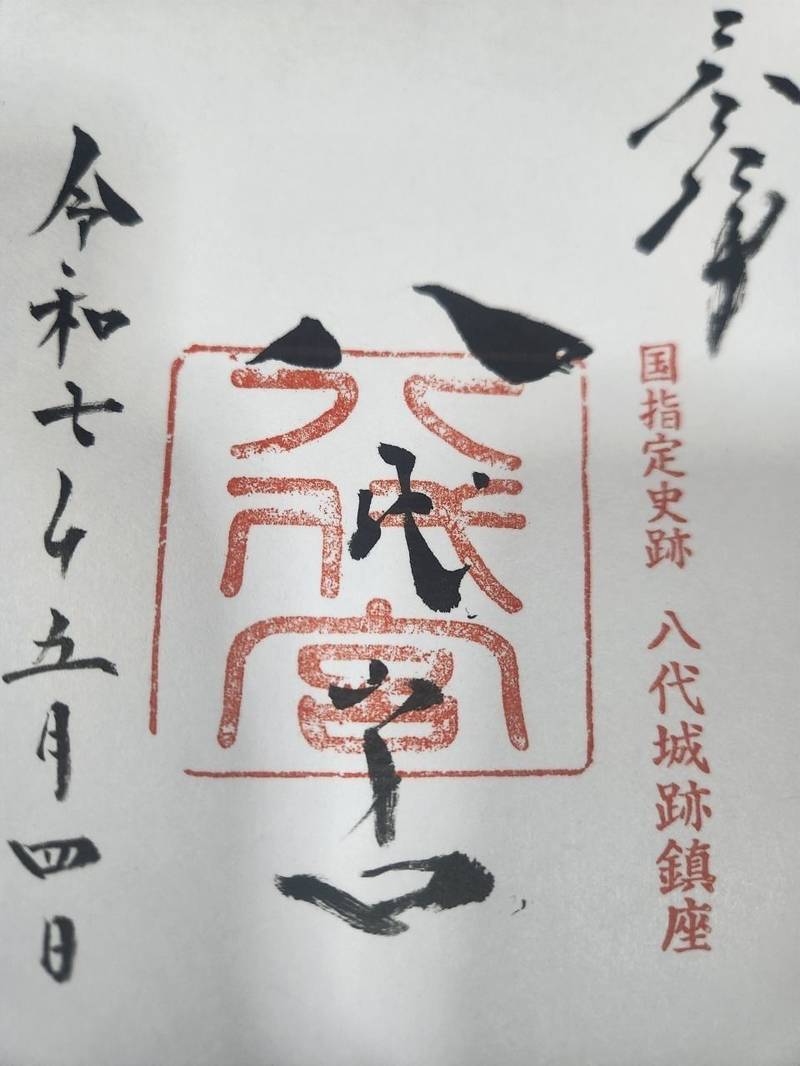 奉拝
国指定史跡　八代城跡鎮座
八代宮
八代宮
令和七年五月四日